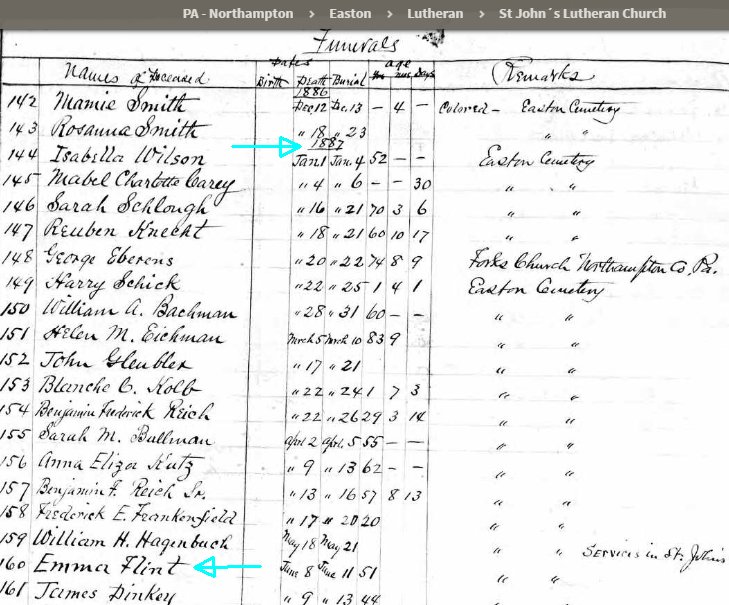 PA - Northampton › Easton › Lutheran › St John´s Lutheran Church
Funerals
Names of Deceased Dates Birth Death Burial age Yrs mos Days Remarks
1886
142 Mamie Smith Dec. 12 Dec. 13 — 4 — Colored - Easton Cemetery
143 Rosanna Smith " 18 " 23 " "
1887
144 Isabella Wilson Jan. 1 Jan. 4 52 — — Easton Cemetery
145 Mabel Charlotte Carey " 4 " 6 — — 30 " "
146 Sarah Schlough " 16 " 21 70 3 6 " "
147 Reuben Knecht " 18 " 21 60 10 17 " "
148 George Eberens " 20 " 22 74 8 9 Forks Church Northampton Co. Pa.
149 Harry Schick " 22 " 25 1 4 1 Easton Cemetery
150 William A. Bachman " 28 " 31 60 — — " "
151 Helen M. Eichman March 5 March 10 83 9 " "
152 John Gleubler " 17 " 21 " "
153 Blanche C. Kolb " 22 " 24 1 7 3 " "
154 Benjamin Frederick Reich " 22 " 26 29 3 14 " "
155 Sarah M. Bullman Apr. 2 Apr. 5 55 — — " "
156 Anna Eliza Kutz " 9 " 13 62 — — " "
157 Benjamin F. Reich Sr. " 13 " 16 57 8 13 " "
158 Frederick E. Frankenfield " 17 " 20 20 " "
159 William H. Hagenbuch May 18 May 21 " " Services in St. Johns
160 Emma Flint June 8 June 11 51 " "
161 James Pinkey " 9 " 13 44